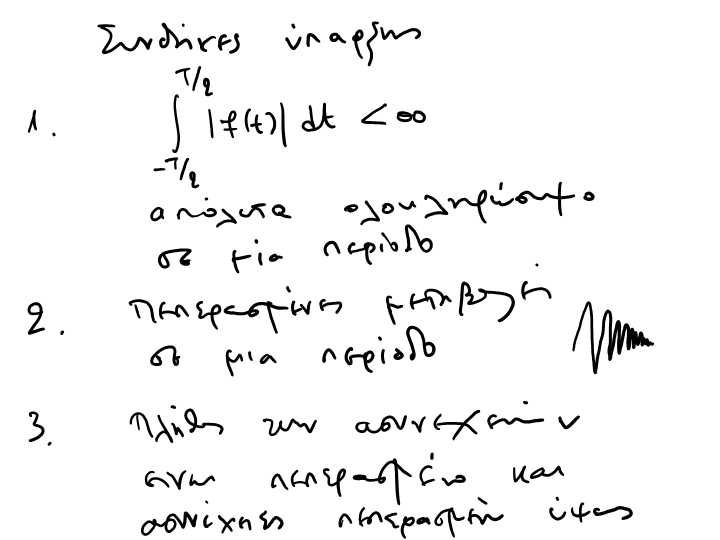 Συνθήκες ύπαρξης
1. ∫_{-T/2}^{T/2} |f(t)| dt < ∞
απόλυτα ολοκληρώσιμο
σε μία περίοδο
2. Πεπερασμένες μεταβολές
σε μια περίοδο
3. Πλήθος των ασυνεχειών
είναι πεπερασμένο και
ασυνέχειες πεπερασμένου ύψους